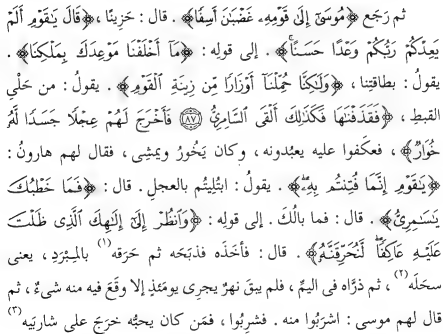 ثم رَجَع ﴿مُوسَىٰٓ إِلَىٰ قَوْمِهِۦ غَضْبَٰنَ أَسِفًا﴾ . قال : حَزِينًا ، ﴿قَالَ يَٰقَوْمِ أَلَمْ
يَعِدْكُمْ رَبُّكُمْ وَعْدًا حَسَنًا﴾ . إلى قولِه : ﴿مَآ أَخْلَفْنَا مَوْعِدَكَ بِمَلْكِنَا﴾ .
يقولُ : بطاقتِنا ، ﴿وَلَٰكِنَّا حُمِّلْنَآ أَوْزَارًا مِّن زِينَةِ الْقَوْمِ﴾ . يقولُ : من حَلْيِ
القبطِ ، ﴿فَقَذَفْنَٰهَا فَكَذَٰلِكَ أَلْقَى السَّامِرِيُّ (٨٧) فَأَخْرَجَ لَهُمْ عِجْلًا جَسَدًا لَّهُۥ
خُوَارٌ﴾ ، فعكَفوا عليه يعبُدونه ، وكان يَخُورُ ويمشِى ، فقال لهم هارونُ :
﴿يَٰقَوْمِ إِنَّمَا فُتِنتُم بِهِۦ﴾ . يقولُ : ابتُلِيتُم بالعجلِ . قال : ﴿فَمَا خَطْبُكَ
يَٰسَٰمِرِيُّ﴾ . قال : فما بالُكَ . إلى قولِه : ﴿وَانظُرْ إِلَىٰٓ إِلَٰهِكَ الَّذِى ظَلْتَ
عَلَيْهِ عَاكِفًا لَّنُحَرِّقَنَّهُۥ﴾ . قال : فأخَذه فذبَحه ثم حرَقه (١) بالمِبْرَدِ ، يعنى
سحَلَه (٢) ، ثم ذرَّاه فى اليمِّ ، فلم يبقَ نهرٌ يجرِى يومَئذٍ إلا وقَع فيه منه شىءٌ ، ثم
قال لهم موسى : اشرَبوا منه . فشرِبوا ، فمَن كان يحبُّه خرَج على شاربَيه (٣)